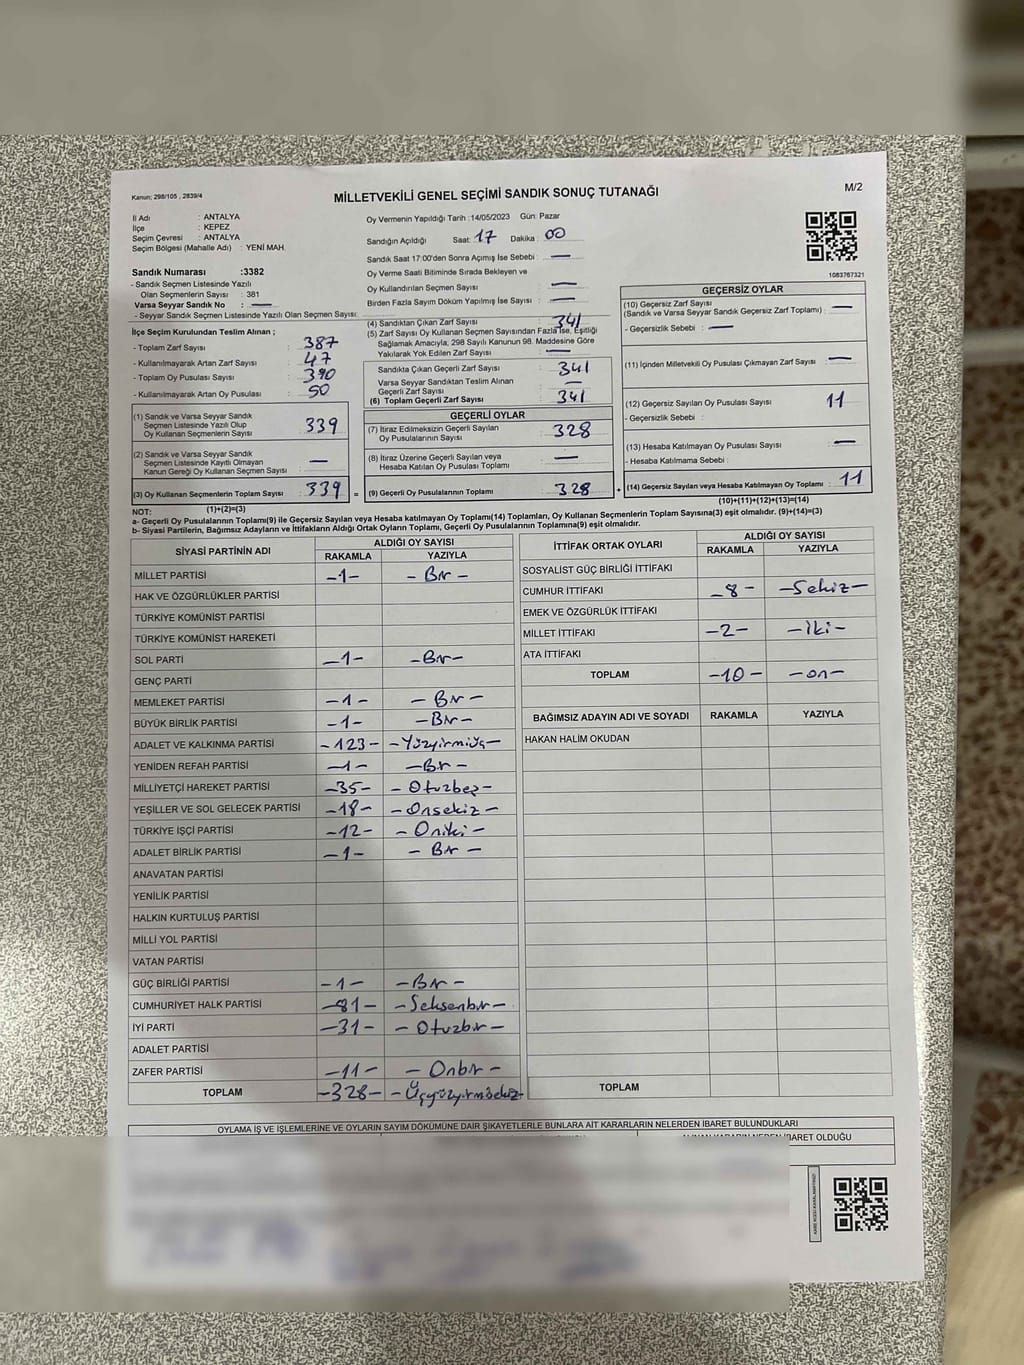 Kanun; 298/105 , 2839/4
MİLLETVEKİLİ GENEL SEÇİMİ SANDIK SONUÇ TUTANAĞI
M/2
İl Adı : ANTALYA
İlçe : KEPEZ
Seçim Çevresi : ANTALYA
Seçim Bölgesi (Mahalle Adı) : YENİ MAH.
Sandık Numarası :3382
- Sandık Seçmen Listesinde Yazılı
Olan Seçmenlerin Sayısı : 381
Varsa Seyyar Sandık No : —
- Seyyar Sandık Seçmen Listesinde Yazılı Olan Seçmen Sayısı:
Oy Vermenin Yapıldığı Tarih :14/05/2023 Gün: Pazar
Sandığın Açıldığı Saat: 17 Dakika : 00
Sandık Saat 17:00'den Sonra Açımış İse Sebebi : —
Oy Verme Saati Bitiminde Sırada Bekleyen ve
Oy Kullandırılan Seçmen Sayısı : —
Birden Fazla Sayım Döküm Yapılmış İse Sayısı : —
1083767321
İlçe Seçim Kurulundan Teslim Alınan ;
- Toplam Zarf Sayısı : 387
- Kullanılmayarak Artan Zarf Sayısı : 47
- Toplam Oy Pusulası Sayısı : 390
- Kullanılmayarak Artan Oy Pusulası : 50
(1) Sandık ve Varsa Seyyar Sandık
Seçmen Listesinde Yazılı Olup
Oy Kullanan Seçmenlerin Sayısı : 339
(2) Sandık ve Varsa Seyyar Sandık
Seçmen Listesinde Kayıtlı Olmayan
Kanun Gereği Oy Kullanan Seçmen Sayısı : —
(3) Oy Kullanan Seçmenlerin Toplam Sayısı : 339 =
(1)+(2)=(3)
(4) Sandıktan Çıkan Zarf Sayısı : 341
(5) Zarf Sayısı Oy Kullanan Seçmen Sayısından Fazla İse, Eşitliği
Sağlamak Amacıyla; 298 Sayılı Kanunun 98. Maddesine Göre
Yakılarak Yok Edilen Zarf Sayısı : —
Sandıkta Çıkan Geçerli Zarf Sayısı : 341
Varsa Seyyar Sandıktan Teslim Alınan
Geçerli Zarf Sayısı : —
(6) Toplam Geçerli Zarf Sayısı : 341
GEÇERLİ OYLAR
(7) İtiraz Edilmeksizin Geçerli Sayılan
Oy Pusulalarının Sayısı : 328
(8) İtiraz Üzerine Geçerli Sayılan veya
Hesaba Katılan Oy Pusulası Toplamı : —
(9) Geçerli Oy Pusulalarının Toplamı : 328 +
GEÇERSİZ OYLAR
(10) Geçersiz Zarf Sayısı
(Sandık ve Varsa Seyyar Sandık Geçersiz Zarf Toplamı) : —
- Geçersizlik Sebebi : —
(11) İçinden Milletvekili Oy Pusulası Çıkmayan Zarf Sayısı : —
(12) Geçersiz Sayılan Oy Pusulası Sayısı : 11
- Geçersizlik Sebebi :
(13) Hesaba Katılmayan Oy Pusulası Sayısı : —
- Hesaba Katılmama Sebebi :
(14) Geçersiz Sayılan veya Hesaba Katılmayan Oy Toplamı : 11
(10)+(11)+(12)+(13)=(14)
NOT:
a- Geçerli Oy Pusulalarının Toplamı(9) ile Geçersiz Sayılan veya Hesaba katılmayan Oy Toplamı(14) Toplamları, Oy Kullanan Seçmenlerin Toplam Sayısına(3) eşit olmalıdır. (9)+(14)=(3)
b- Siyasi Partilerin, Bağımsız Adayların ve İttifakların Aldığı Ortak Oyların Toplamı, Geçerli Oy Pusulalarının Toplamına(9) eşit olmalıdır.
SİYASİ PARTİNİN ADI
ALDIĞI OY SAYISI
RAKAMLA YAZIYLA
MİLLET PARTİSİ -1- - Bir -
HAK VE ÖZGÜRLÜKLER PARTİSİ
TÜRKİYE KOMÜNİST PARTİSİ
TÜRKİYE KOMÜNİST HAREKETİ
SOL PARTİ -1- -Bir-
GENÇ PARTİ
MEMLEKET PARTİSİ -1- - Bir -
BÜYÜK BİRLİK PARTİSİ -1- -Bir-
ADALET VE KALKINMA PARTİSİ -123- -Yüzyirmiüç-
YENİDEN REFAH PARTİSİ -1- -Bir-
MİLLİYETÇİ HAREKET PARTİSİ -35- - Otuzbeş-
YEŞİLLER VE SOL GELECEK PARTİSİ -18- -Onsekiz-
TÜRKİYE İŞÇİ PARTİSİ -12- - Oniki -
ADALET BİRLİK PARTİSİ -1- - Bir -
ANAVATAN PARTİSİ
YENİLİK PARTİSİ
HALKIN KURTULUŞ PARTİSİ
MİLLİ YOL PARTİSİ
VATAN PARTİSİ
GÜÇ BİRLİĞİ PARTİSİ -1- -Bir-
CUMHURİYET HALK PARTİSİ -81- -Seksenbir-
İYİ PARTİ -31- - Otuzbir-
ADALET PARTİSİ
ZAFER PARTİSİ -11- - Onbir -
TOPLAM -328- -Üçyüzyirmisekiz-
İTTİFAK ORTAK OYLARI
ALDIĞI OY SAYISI
RAKAMLA YAZIYLA
SOSYALİST GÜÇ BİRLİĞİ İTTİFAKI
CUMHUR İTTİFAKI -8- -Sekiz-
EMEK VE ÖZGÜRLÜK İTTİFAKI
MİLLET İTTİFAKI -2- -iki-
ATA İTTİFAKI
TOPLAM -10- -on-
BAĞIMSIZ ADAYIN ADI VE SOYADI RAKAMLA YAZIYLA
HAKAN HALİM OKUDAN
TOPLAM
OYLAMA İŞ VE İŞLEMLERİNE VE OYLARIN SAYIM DÖKÜMÜNE DAİR ŞİKAYETLERLE BUNLARA AİT KARARLARIN NELERDEN İBARET BULUNDUKLARI
İBARET OLDUĞU